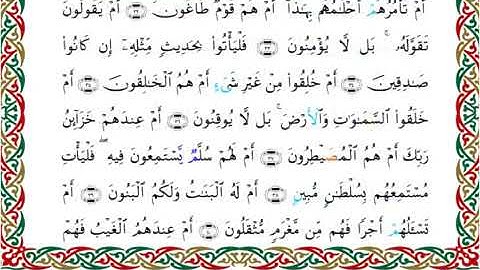 أَمْ تَأْمُرُهُمْ أَحْلَـٰمُهُم بِهَـٰذَآ ۚ أَمْ هُمْ قَوْمٌ طَاغُونَ ۝٣٢ أَمْ يَقُولُونَ
تَقَوَّلَهُۥ ۚ بَل لَّا يُؤْمِنُونَ ۝٣٣ فَلْيَأْتُوا۟ بِحَدِيثٍ مِّثْلِهِۦٓ إِن كَانُوا۟
صَـٰدِقِينَ ۝٣٤ أَمْ خُلِقُوا۟ مِنْ غَيْرِ شَىْءٍ أَمْ هُمُ ٱلْخَـٰلِقُونَ ۝٣٥ أَمْ
خَلَقُوا۟ ٱلسَّمَـٰوَٰتِ وَٱلْأَرْضَ ۚ بَل لَّا يُوقِنُونَ ۝٣٦ أَمْ عِندَهُمْ خَزَآئِنُ
رَبِّكَ أَمْ هُمُ ٱلْمُصَۣيْطِرُونَ ۝٣٧ أَمْ لَهُمْ سُلَّمٌ يَسْتَمِعُونَ فِيهِ ۖ فَلْيَأْتِ
مُسْتَمِعُهُم بِسُلْطَـٰنٍ مُّبِينٍ ۝٣٨ أَمْ لَهُ ٱلْبَنَـٰتُ وَلَكُمُ ٱلْبَنُونَ ۝٣٩ أَمْ
تَسْـَٔلُهُمْ أَجْرًا فَهُم مِّن مَّغْرَمٍ مُّثْقَلُونَ ۝٤٠ أَمْ عِندَهُمُ ٱلْغَيْبُ فَهُمْ